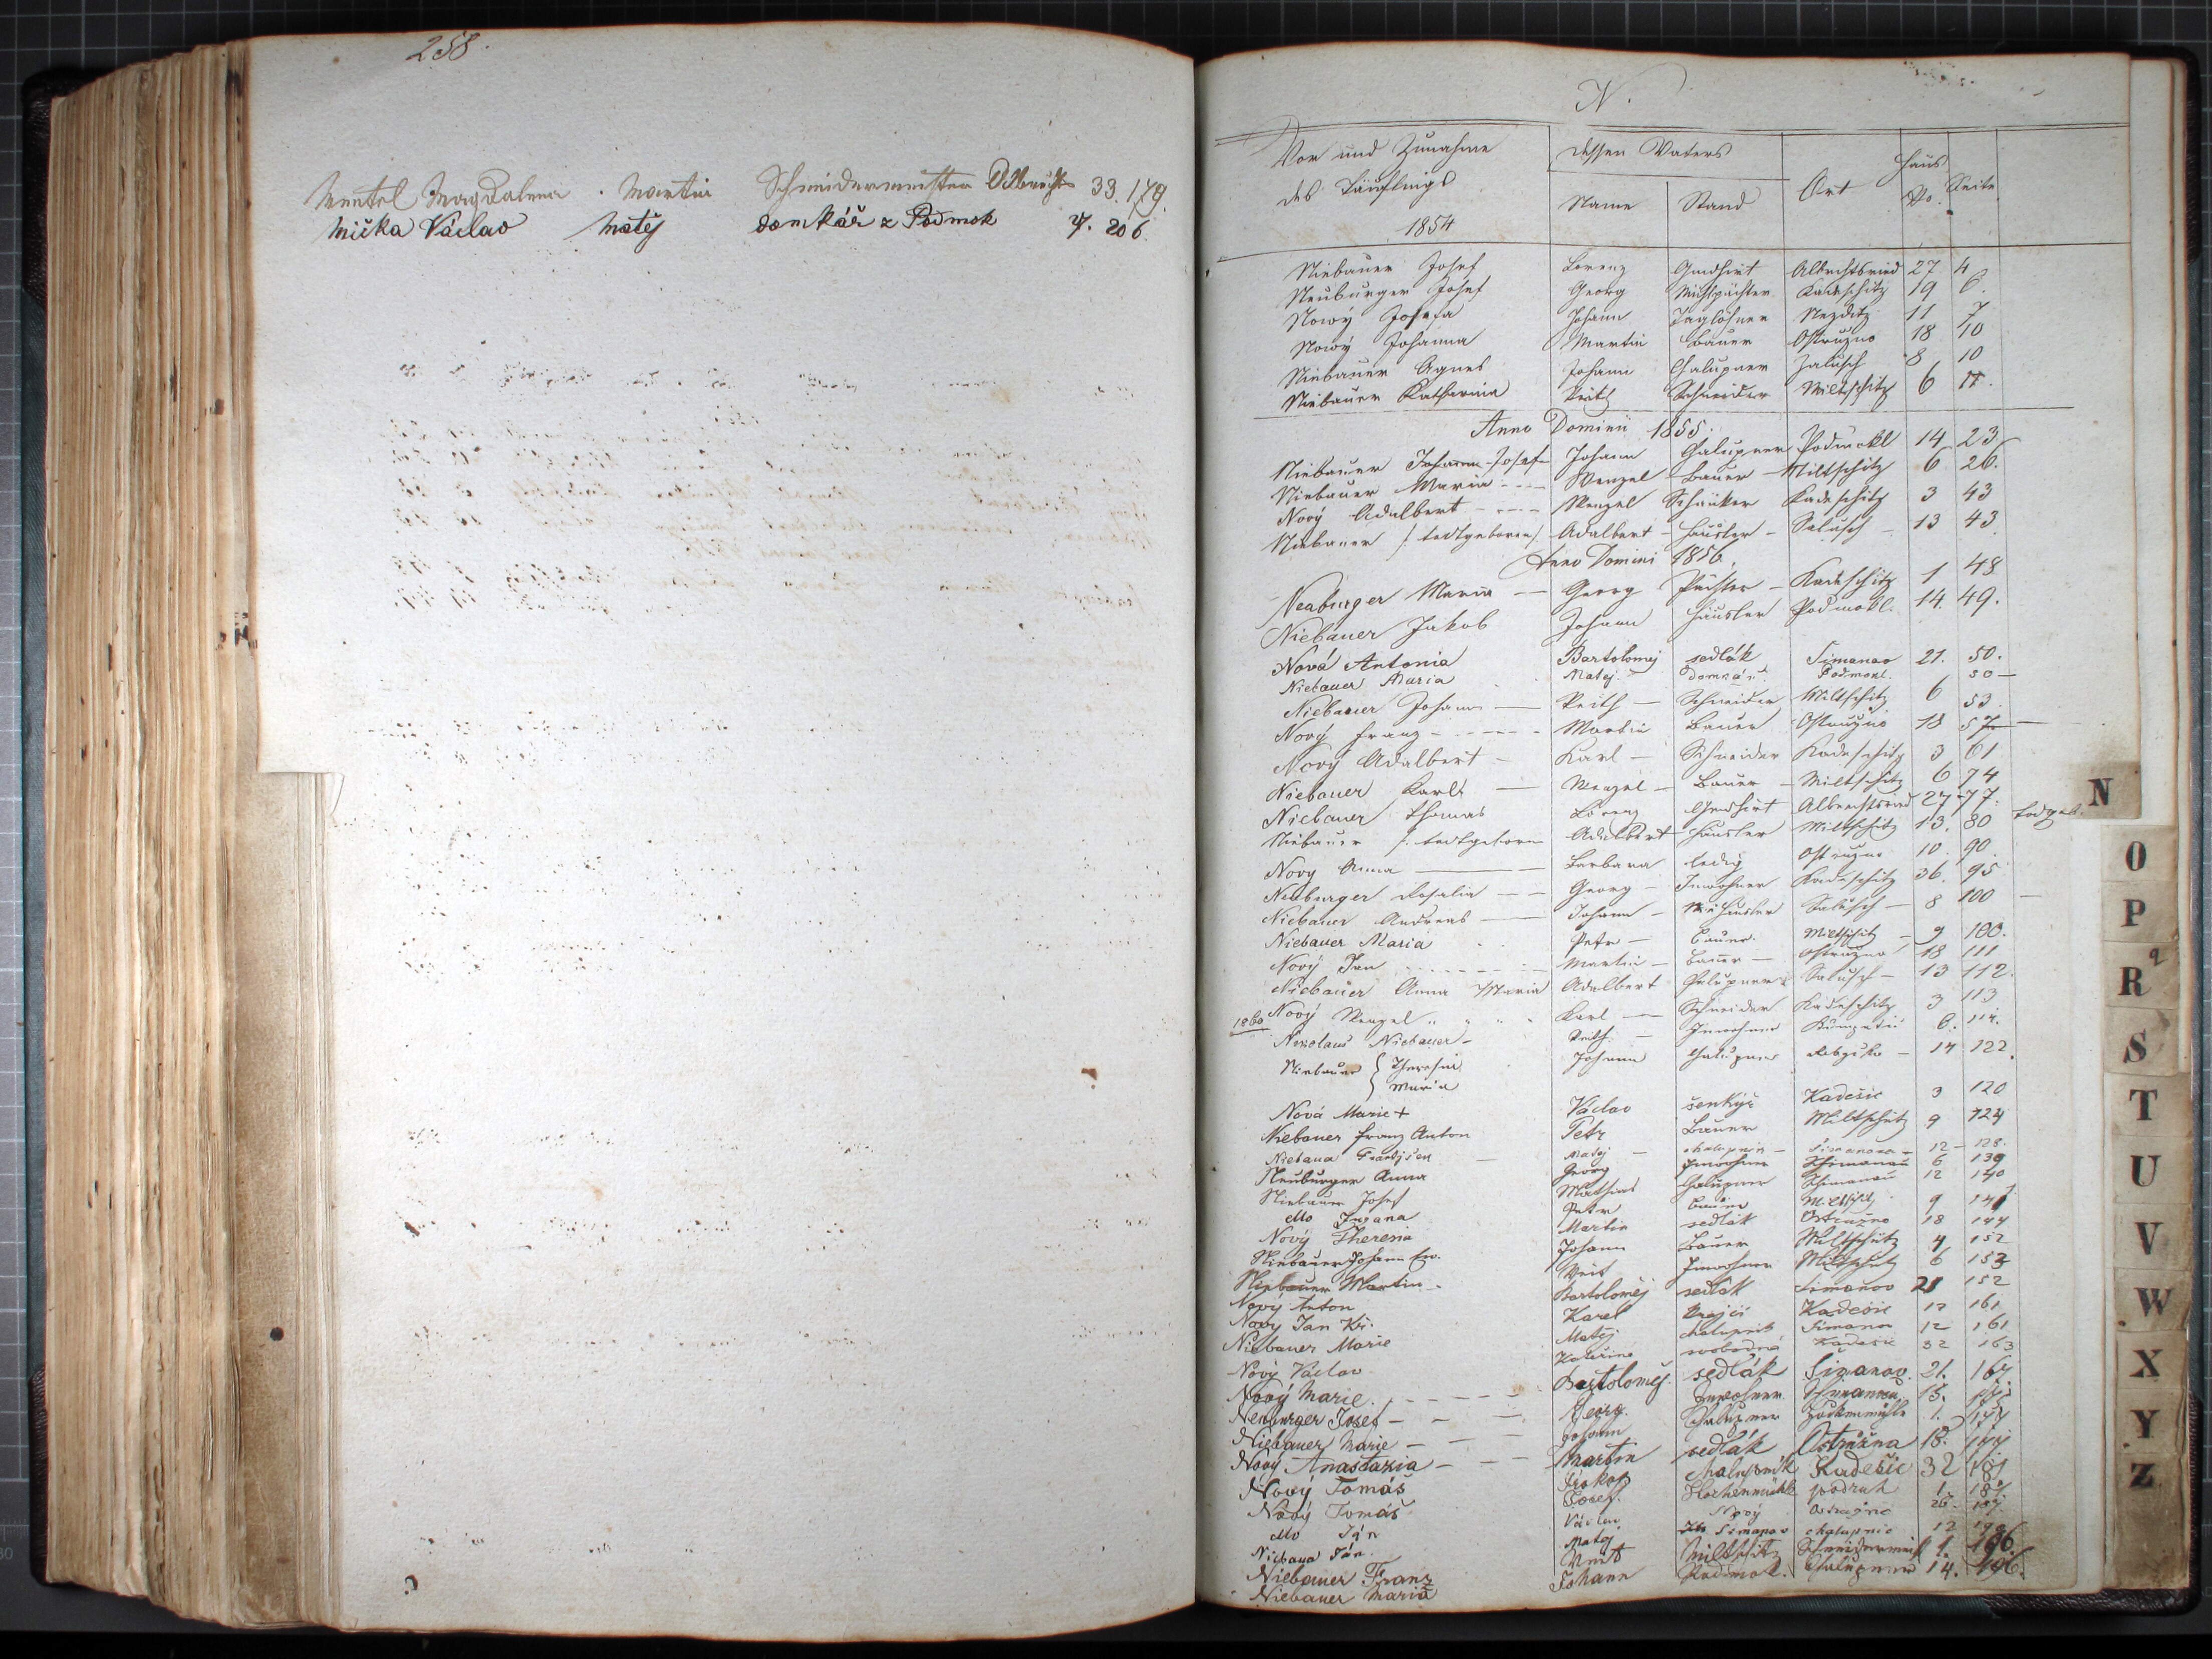 258.
Mentel Magdalena . Martin Schneidermeister 33. 179.
Mička Václav Matěj domkář z Podmok 7. 206
N.
Vor und Zunahme des Täuflings dessen Vaters Ort Haus No. Seite
Name Stand
1854
Niebauer Josef Lorenz Albrechtsried 27 4
Neuburger Josef Georg Kadeschitz 19 6.
Nowý Josefa Johann Taglöhner Nezditz 11 7
Nowý Johanna Martin Bauer Ostružno 18 10
Niebauer Agnes Johann Chalupner Zalusch 8 10
Niebauer Katharina Veith Schneider Miltschitz 6 11.
Anno Domini 1855.
Niebauer Johann Josef Johann Chalupner Podmokl 14 23
Niebauer Maria Wenzel Bauer Miltschitz 6 26.
Nový Adalbert Wenzel Schänker Kadeschitz 3 43
Niebauer /: todtgeboren/. Adalbert Häusler Salusch 13 43
Anno Domini 1856.
Neuburger Maria Georg Kadeschitz 1 48
Niebauer Jakob Johann Häusler Podmokl. 14. 49.
Nová Antonia Bartoloměj sedlák Simanov 21. 50.
Niebauer Maria Matěj domkář Podmokl. 50
Niebauer Johann Veith Schneider Miltschitz 6 53.
Nový Franz Martin Bauer Ostružno 18 57
Nový Adalbert Karl Schneider Kadeschitz 3 61
Niebauer Karl Wenzel Bauer Miltschitz 6 74
Niebauer Thomas Lorenz Albrechtsried 27 77.
Niebauer /: todtgeboren Adalbert Häusler Miltschitz 13. 80 todtgeb.
Nový Anna Barbara ledig Ostružno 10. 90
Neuburger Rosalia Georg Inwohner Kadeschitz 36. 95
Niebauer Andreas Johann Salusch 8 100
Niebauer Maria Petr Bauer Miltschitz 9 100.
Nový Jan Martin Bauer Ostružno 18 111
Niebauer Anna Maria Adalbert Chalupner Salusch 13 112.
1860 Nový Wenzel Karl Schneider Kadeschitz 3 113
Niebauer Veith Inwohner 6. 114.
Niebauer { Theresia Johann Chalupner 14 122.
Maria
Nová Marie + Václav šenkýř Kadešic 3 120
Niebauer Franz Anton Petr Bauer Miltschitz 9 124
Niebaua Matěj chalupník Simanova 12 128.
Neuburger Anna Georg Inwohner Schimanau 6 139
Niebauer Josef Mathias Chalupner Schimanau 12 140
dto Petr Bauer Miltschitz 9 141
Nový Theresia Martin sedlák Ostružno 18 144
Niebauer Johann Johann Bauer Miltschitz 4 152
Niebauer Martin Veit Inwohner Miltschitz 6 153
Nový Anton Bartoloměj sedlák Simanov 21 152
Nový Jan Kř. Karel krejčí Kadešic 12 161
Niebauer Marie Matěj chalupník Simanov 12 161
Nový Václav Kateřina svobodná Kadešic 32 163
Nový Marie. Bartoloměj. sedlák Simanov. 21. 167
Neuburger Josef Georg. Inwohner 15.
Niebauer Marie Johann Chalupner 1.
Nový Anastazia Martin sedlák Ostružna 18. 177
Nový Tomáš Prokop chalupník Kadešic 32 181
Nový Tomáš Josef. podruh 1.
dto Jan Václav 26.
Niebaua Jan. Matěj Simanov chalupnic 12
Niebauer Franz Veit Miltschitz Schneidermeist 1. 196.
Niebauer Maria Johann Podmok. Chalupner 14. 196.
N
O
P
q
R
S
T
U
V
W
X
Y
Z